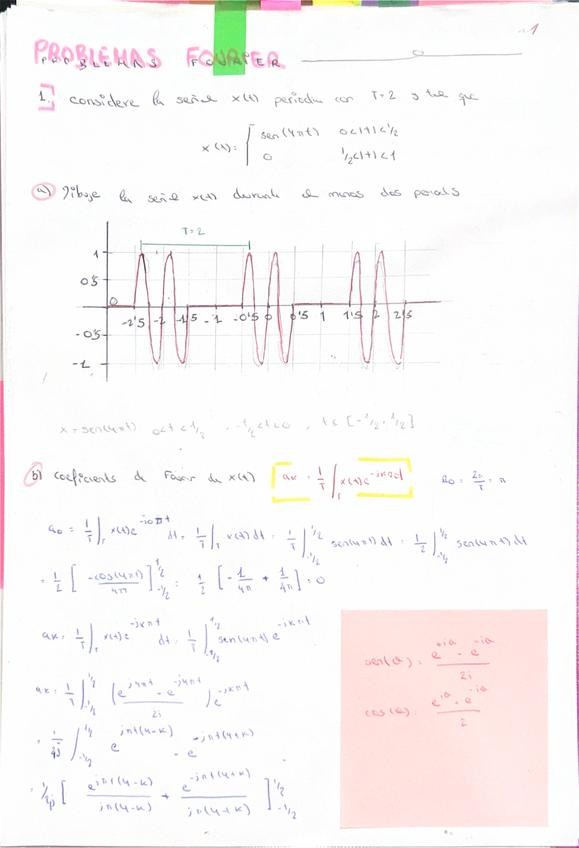 1
PROBLEMAS FOURIER
1. Considere la señal x(t) periodica con T=2 y tal que
x(t) = { sen(4πt) 0<|t|<1/2
0 1/2<|t|<1
a) Dibuje la señal x(t) durante al menos dos periods
T=2
1
0'5
0
-0'5
-1
-2'5 -2 -1'5 -1 -0'5 0 0'5 1 1'5 2 2'5
x = sen(4πt) 0<t<1/2 -1/2<t<0 t ∈ [-1/2, 1/2]
b) coeficients de Fourier de x(t) ak = 1/T ∫T x(t) e^-jkΩot Ωo = 2π/T = π
a0 = 1/T ∫T x(t) e^-j0πt dt = 1/T ∫T x(t) dt = 1/T ∫-1/2^1/2 sen(4πt) dt = 1/2 ∫-1/2^1/2 sen(4πt) dt
= 1/2 [ -cos(4πt)/4π ]-1/2^1/2 = 1/2 [ -1/4π + 1/4π ] = 0
ak = 1/T ∫T x(t) e^-jkπt dt = 1/T ∫-1/2^1/2 sen(4πt) e^-jkπt
ak = 1/T ∫-1/2^1/2 ( e^j4πt - e^-j4πt / 2i ) e^-jkπt
= 1/4j ∫-1/2^1/2 e^jπt(4-k) - e^-jπt(4+k)
= 1/4j [ e^jπt(4-k) / jπ(4-k) + e^-jπt(4+k) / jπ(4+k) ]-1/2^1/2
sen(a) = e^ia - e^-ia / 2i
cos(a) = e^ia + e^-ia / 2